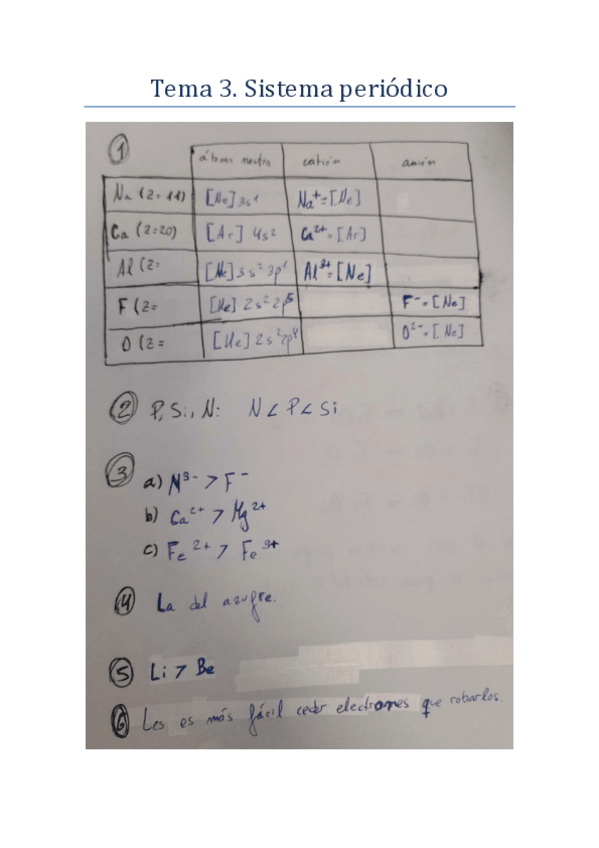 Tema 3. Sistema periódico
①
átomo neutro catión anión
Na (z=11) [Ne]3s¹ Na⁺=[Ne]
Ca (z=20) [Ar] 4s² Ca²⁺=[Ar]
Al (z= [Ne]3s²3p¹ Al³⁺=[Ne]
F (z= [He] 2s²2p⁵ F⁻=[Ne]
O (z= [He]2s²2p⁴ O²⁻=[Ne]
② P, Si, N: N<P<Si
③ a) N³⁻ > F⁻
b) Ca²⁺ > Mg²⁺
c) Fe²⁺ > Fe³⁺
④ La del azufre.
⑤ Li > Be
⑥ Les es más fácil ceder electrones que robarlos.